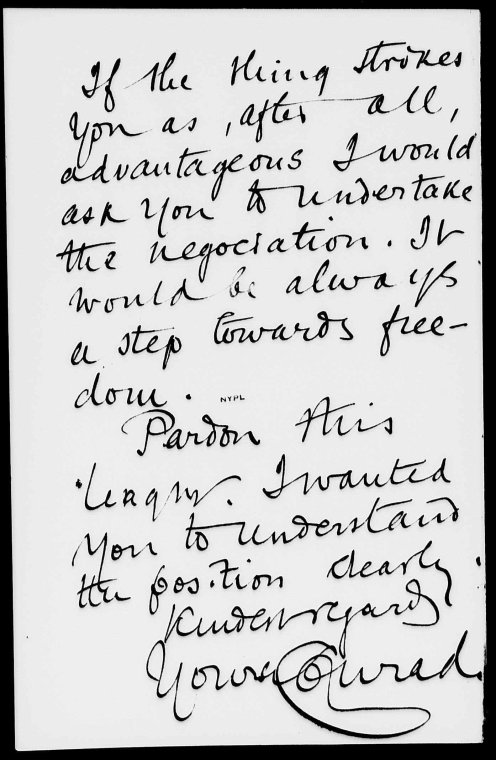 If the thing strikes
you as, after all,
advantageous I would
ask you to undertake
the negociation. It
would be always
a step towards free-
dom.
NYPL
Pardon this
length. I wanted
you to understand
the position clearly.
Kindest regards
Yours Conrad.